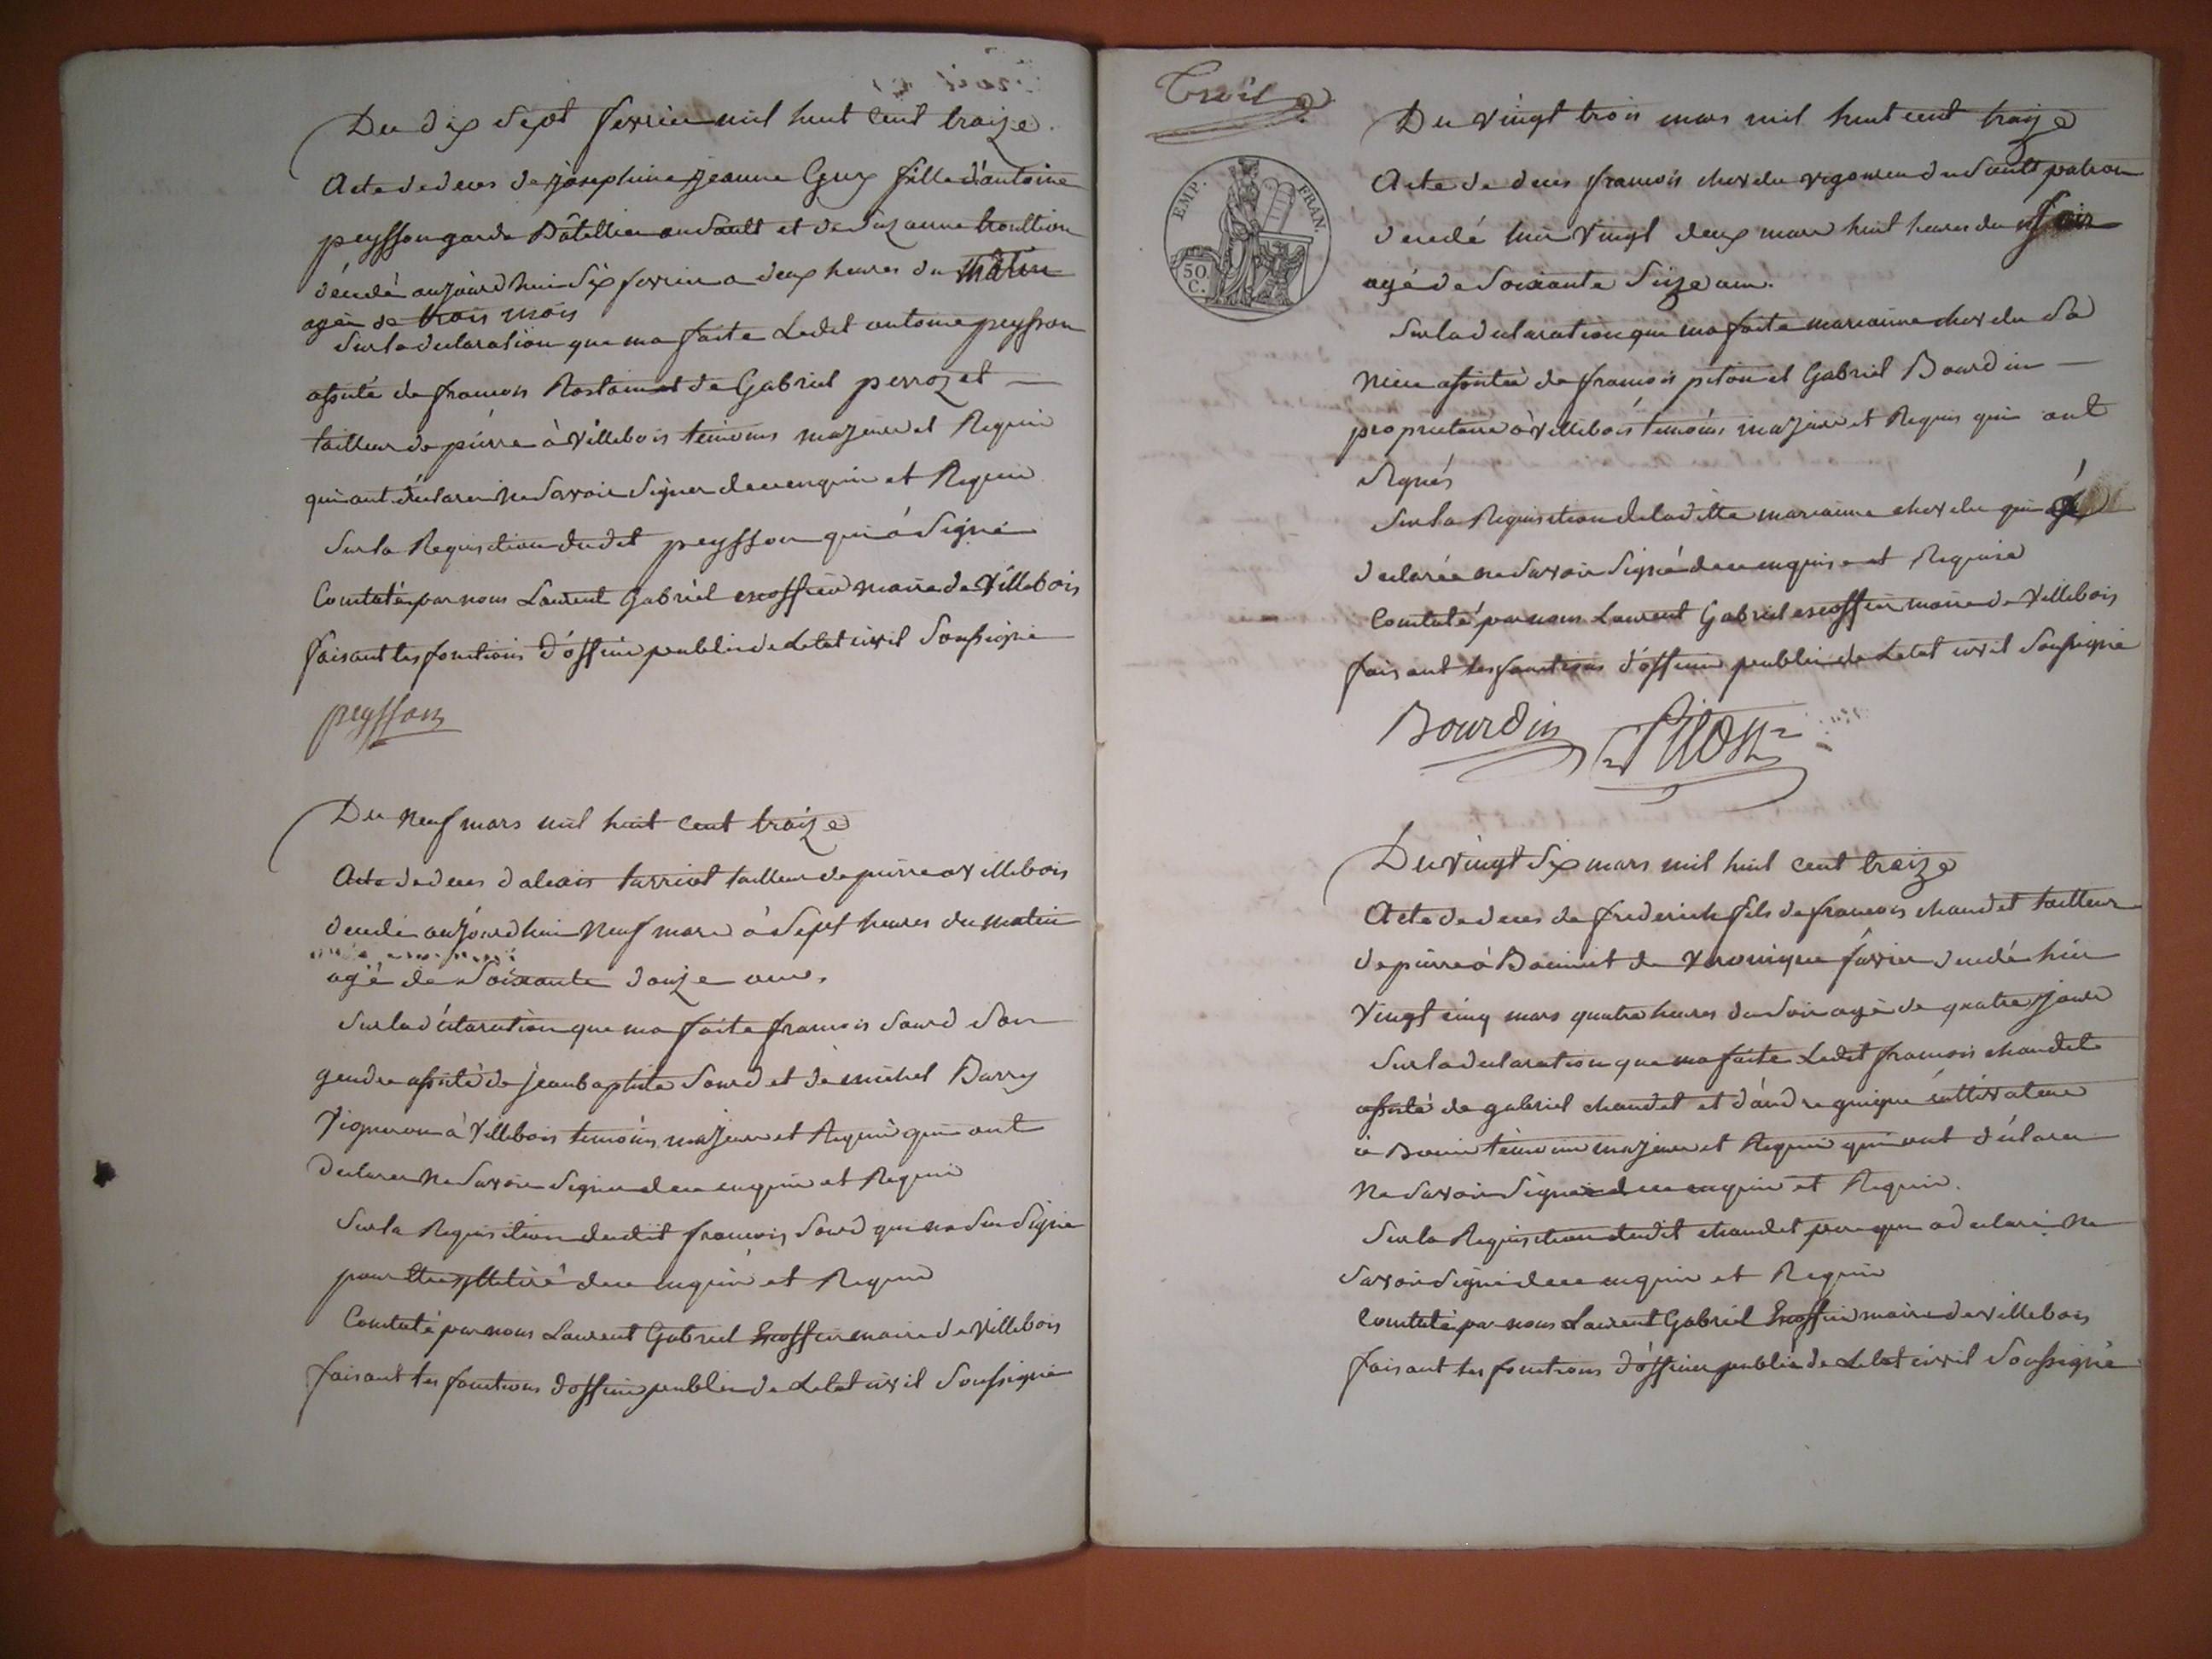 Du dix Sept fevrier mil huit Cent traize.
Acte de deces de josephine jeanne Guy fille d'antoine
peysson garde Bâtellier au Sault et de Suzanne trouttion
décédé aujourd'hui dix fevrier a deux heures du Matin
agée de trois mois
Sur la declaration que ma faite Ledit antoine peysson
assisté de francois Rostain et de Gabriel perrozet
tailleur de pierre à Villebois temoins majeurs et Requis
qui ont déclarer ne Savoir Signer de ce enquis et Requis
Sur la Requisition dudit peysson qui à Signé
Constaté par nous Laurent Gabriel escoffier maire de Villebois
faisant les fonctions d'officier public de Letat civil Soussigné
peysson
Du Neuf mars mil huit Cent traize
Acte de deces d'alexis tarriot tailleur de pierre a Villebois
décédé aujourd'hui Neuf mars à Sept heures du matin
agé de Soixante douze ans.
Sur la déclaration que ma faite francois Sourd Son
gendre assisté de jean baptiste Sourd et de michel Barry
Vigneron à Villebois temoins majeurs et Requis qui ont
declarer Ne Savoir Signer de ce enquis et Requis
Sur la Requisition dudit francois Sourd qui na Su Signé
pour etre illetiré de ce enquis et Requis
Constaté par nous Laurent Gabriel Escoffier maire de Villebois
faisant les fonctions d'officier public de Letat civil Soussigné
Troil
EMP. FRAN.
50. C.
Du Vingt trois mars mil huit cent traize
Acte de deces francois chevelu vigoureu du Sault patron
décedé hier Vingt deux mars huit heures du Soir
agé de Soixante Seize ans.
Sur la declaration que ma faite marianne chevelu Sa
Niece assistée de francois piton et Gabriel Bourdin
proprietaire à Villebois temoins majeurs et Requis qui ont
Signés
Sur la Requisition de la ditte marianne chevelu qui à
declarée ne Savoir Signé de ce enquise et Requise
Constaté par nous Laurent Gabriel escoffier maire de Villebois
faisant les fonctions d'officier public de Letat civil Soussigné
Bourdin Piton
Du Vingt Six mars mil huit cent traize
Acte de deces de frederich fils de francois chaudet tailleur
de pierre à Bouis et de Veronique favier décédé hier
Vingt cinq mars quatre heures du Soir agé de quatre jours
Sur la declaration que ma faite Ledit francois chaudet
assisté de gabriel chaudet et d'andre guigue cultivateur
à Bouis temoins majeurs et Requis qui ont déclarer
Ne Savoir Signer de ce enquis et Requis.
Sur la Requisition dudit chaudet pere qui a declaré Ne
Savoir Signé de ce enquis et Requis
Constaté par nous Laurent Gabriel Escoffier maire de Villebois
faisant les fonctions d'officier public de Letat civil Soussigné